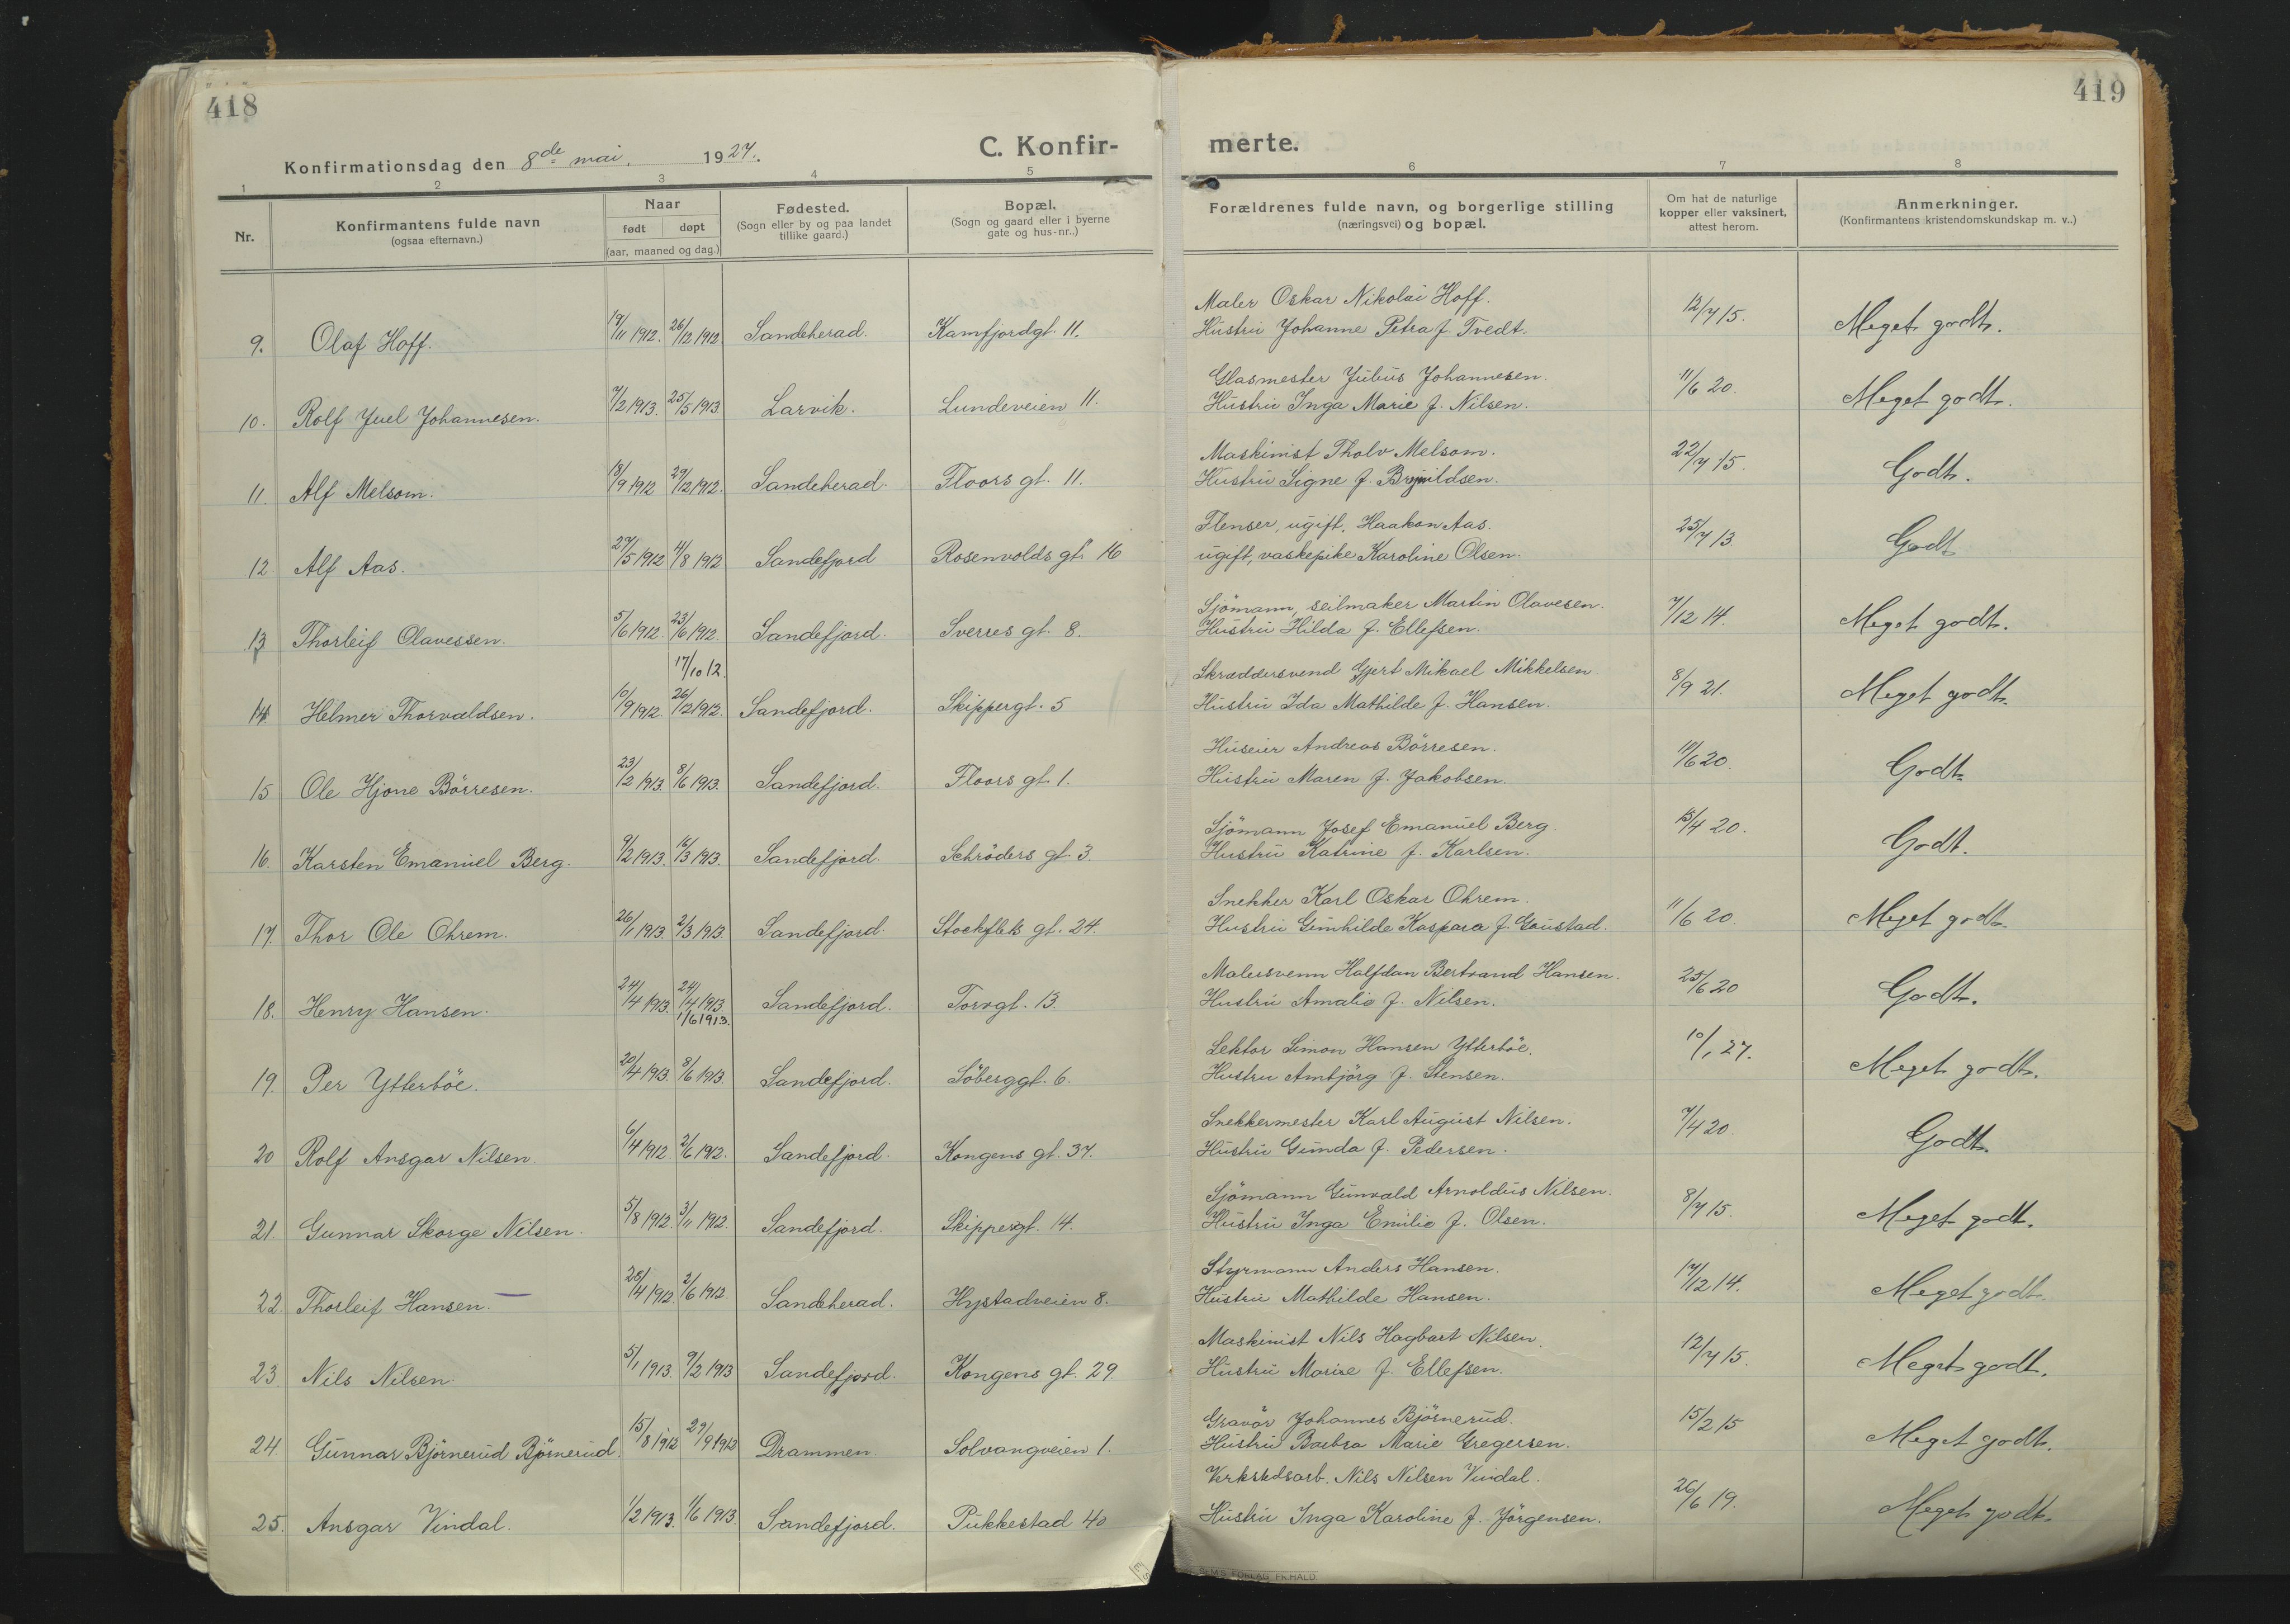 418
419
Konfirmationsdag den 8de mai. 1927.
C. Konfir-
merte.
1 2 3 4 5 6 7 8
Nr.
Konfirmantens fulde navn
(ogsaa efternavn.)
Naar
født døpt
(aar, maaned og dag.)
Fødested.
(Sogn eller by og paa landet
tillike gaard.)
Bopæl.
(Sogn og gaard eller i byerne
gate og hus-nr..)
Forældrenes fulde navn, og borgerlige stilling
(næringsvei) og bopæl.
Om hat de naturlige
kopper eller vaksinert,
attest herom.
Anmerkninger.
(Konfirmantens kristendomskundskap m. v..)
Maler Oskar Nikolai Hoff.
9. Olaf Hoff. 19/11 1912. 26/12 1912 Sandeherad. Kamfjordgt. 11. Hustru Johanne Petra f. Tvedt. 12/7 15. Meget godt.
Glasmester Julius Johannesen.
10. Rolf Juel Johannesen. 7/2 1913. 25/5 1913 Larvik. Lundeveien 11. Hustru Inga Marie f. Nilsen. 11/6 20. Meget godt.
Maskinist Tholv Melsom.
11. Alf Melsom. 18/9 1912 29/12 1912. Sandeherad. Floors gt. 11. Hustru Signe f. Brynildsen. 22/7 15. Godt.
Flenser, ugift, Haakon Aas.
12. Alf Aas. 29/5 1912 4/8 1912 Sandefjord Rosenvolds gt. 16 ugift, vaskepike Karoline Olsen. 25/7 13. Godt
Sjömann, seilmaker Martin Olavesen.
13 Thorleif Olavessen. 5/6 1912. 23/6 1912. Sandefjord. Sverres gt. 8. Hustru Hilda f. Ellefsen. 7/12 14. Meget godt.
17/10 12.
Skræddersvend Gjert Mikael Mikkelsen.
14 Helmer Thorvaldsen. 10/9 1912. 26/12 1912. Sandefjord. Skippergt. 5 Hustru Ida Mathilde f. Hansen. 8/9 21. Meget godt.
Huseier Andreas Börresen.
15 Ole Hjone Börresen. 23/2 1913. 8/6 1913. Sandefjord. Floors gt. 1. Hustru Maren f. Jakobsen. 11/6 20. Godt.
Sjömann Josef Emanuel Berg.
16. Karsten Emanuel Berg. 9/2 1913. 16/3 1913. Sandefjord. Schröders gt. 3. Hustru Katrine f. Karlsen. 15/4 20. Godt.
Snekker Karl Oskar Ohrem.
17. Thor Ole Ohrem. 26/1 1913. 2/3 1913. Sandefjord. Stockflets gt. 24. Hustru Gunhilde Kaspara f. Goustad. 11/6 20. Meget godt.
Malersvenn Halfdan Bertrand Hansen.
18. Henry Hansen. 24/4 1913. 24/4 1913. Sandefjord. Torvgt. 13. Hustru Amalie f. Nilsen. 25/6 20 Godt.
1/6 1913.
Lektor Simon Hansen Ytterböe.
19. Per Ytterböe. 20/4 1913. 8/6 1913. Sandefjord. Söberggt. 6. Hustru Ambjörg f. Stensen. 10/1 27. Meget godt.
Snekkermester Karl August Nilsen.
20 Rolf Ansgar Nilsen. 6/4 1912. 2/6 1912. Sandefjord. Kongens gt. 37. Hustru Gunda f. Pedersen. 7/4 20. Godt.
Sjömann Gunvald Arnoldus Nilsen.
21. Gunnar Skorge Nilsen. 5/8 1912. 3/11 1912. Sandefjord. Skippergt. 14. Hustru Inga Emilie f. Olsen. 8/7 15. Meget godt.
Styrmann Anders Hansen.
22. Thorleif Hansen. 28/4 1912. 2/6 1912 Sandeherad. Hystadveien 8. Hustru Mathilde Hansen. 17/12 14. Meget godt.
Maskinist Nils Hagbart Nilsen.
23. Nils Nilsen. 5/1 1913. 9/2 1913 Sandefjord. Kongens gt. 29 Hustru Marie f. Ellefsen. 12/7 15. Meget godt.
Gravör Johannes Björnerud.
24. Gunnar Björnerud Björnerud. 15/8 1912 29/9 1912 Drammen. Solvangveien 1. Hustru Barbra Marie Gregersen. 15/2 15 Meget godt.
Verkstedsarb. Nils Nilsen Vindal.
25. Ansgar Vindal. 1/2 1913. 1/6 1913 Sandefjord. Pukkestad 40 Hustru Inga Karoline f. Jörgensen. 26/6 19. Meget godt.
SEM'S FORLAG FR.HALD.